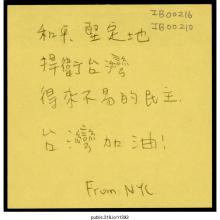 IB00216
IB00210
和平、堅定地
捍衛台灣
得來不易的民主.
台灣加油!
From NYC
public.318.io/11393